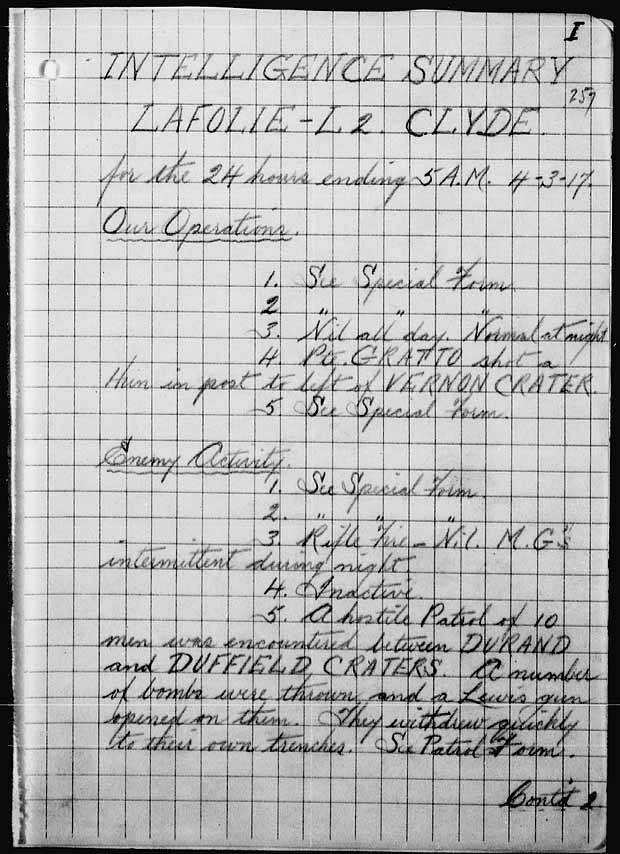 I
INTELLIGENCE SUMMARY
259
LAFOLIE - L2. CLYDE.
for the 24 hours ending 5 A.M. 4-3-17.
Our Operations.
1. See Special Form.
2 " " "
3. Nil all day. Normal at night
4. Pte. GRATTO shot a
Hun in post to left of VERNON CRATER.
5 See Special Form.
Enemy Activity.
1. See Special Form.
2. " " "
3. Rifle Fire - Nil. M.G's
intermittent during night.
4. Inactive.
5. A hostile Patrol of 10
men was encountered between DURAND
and DUFFIELD CRATERS. A number
of bombs were thrown and a Lewis gun
opened on them. They withdrew quickly
to their own trenches. See Patrol Form.
Cont'd 2